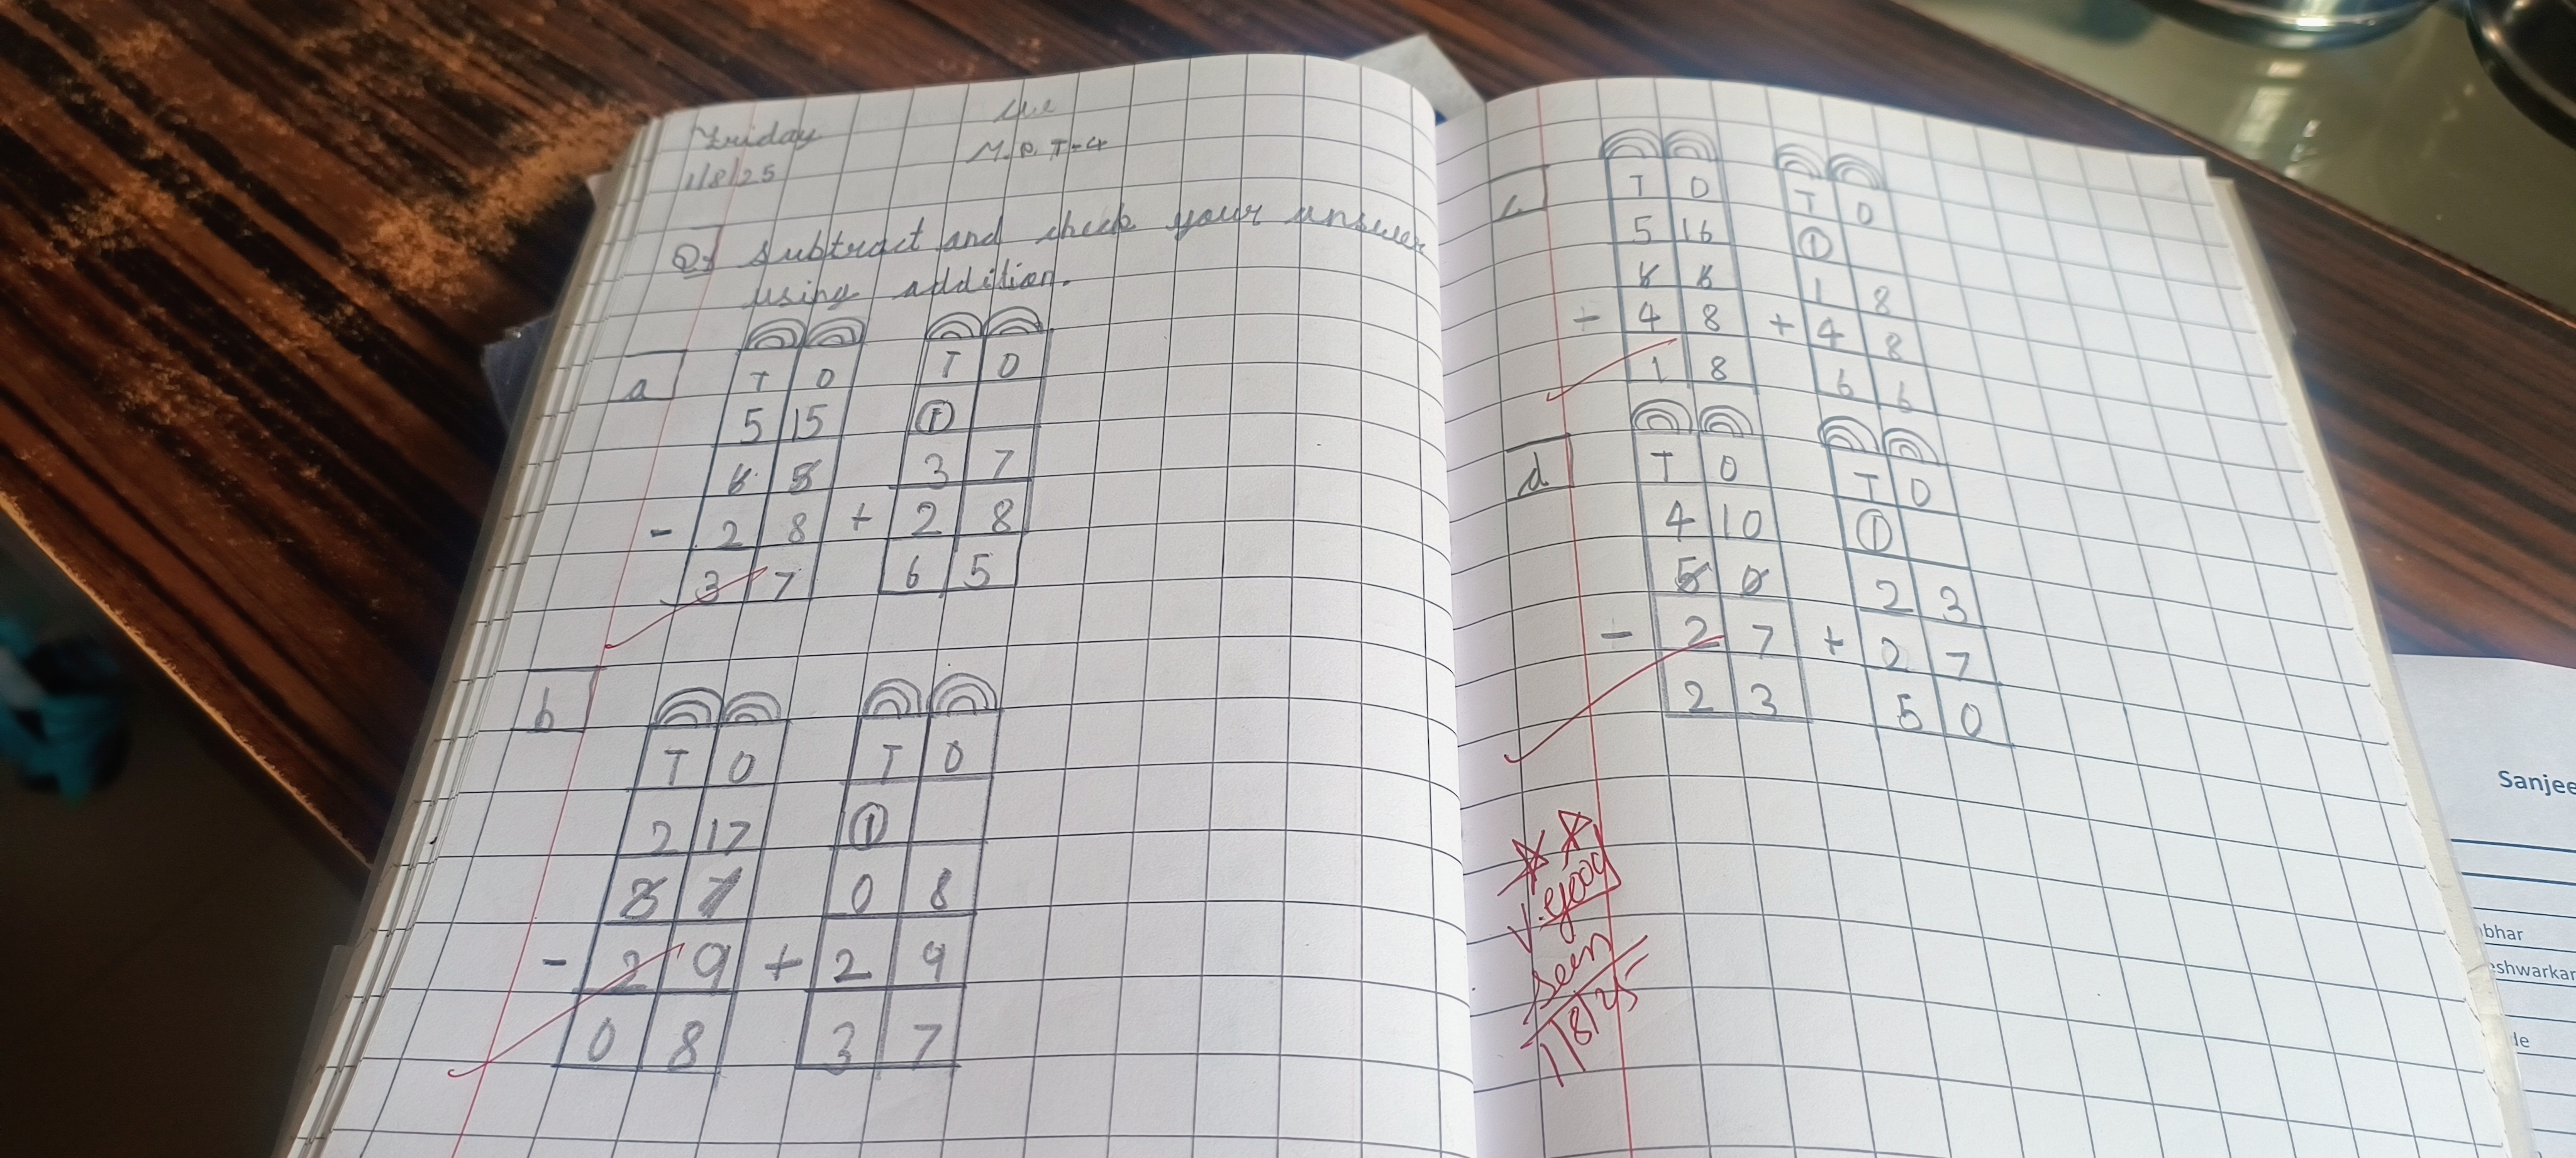 Friday
1/8/25
M.P. T-4
Q1 Subtract and check your answer
using addition.
a
T O T O
5 15 1
6 5 3 7
- 2 8 + 2 8
3 7 6 5
b
T O T O
2 17 1
3 7 0 8
- 2 9 + 2 9
0 8 3 7
c.
T O T O
5 16 1
6 6 1 8
- 4 8 + 4 8
1 8 6 6
d
T O T O
4 10 1
5 0 2 3
- 2 7 + 2 7
2 3 5 0
V.good
seen
1/8/25
Sanjee
bhar
eshwarkar
de